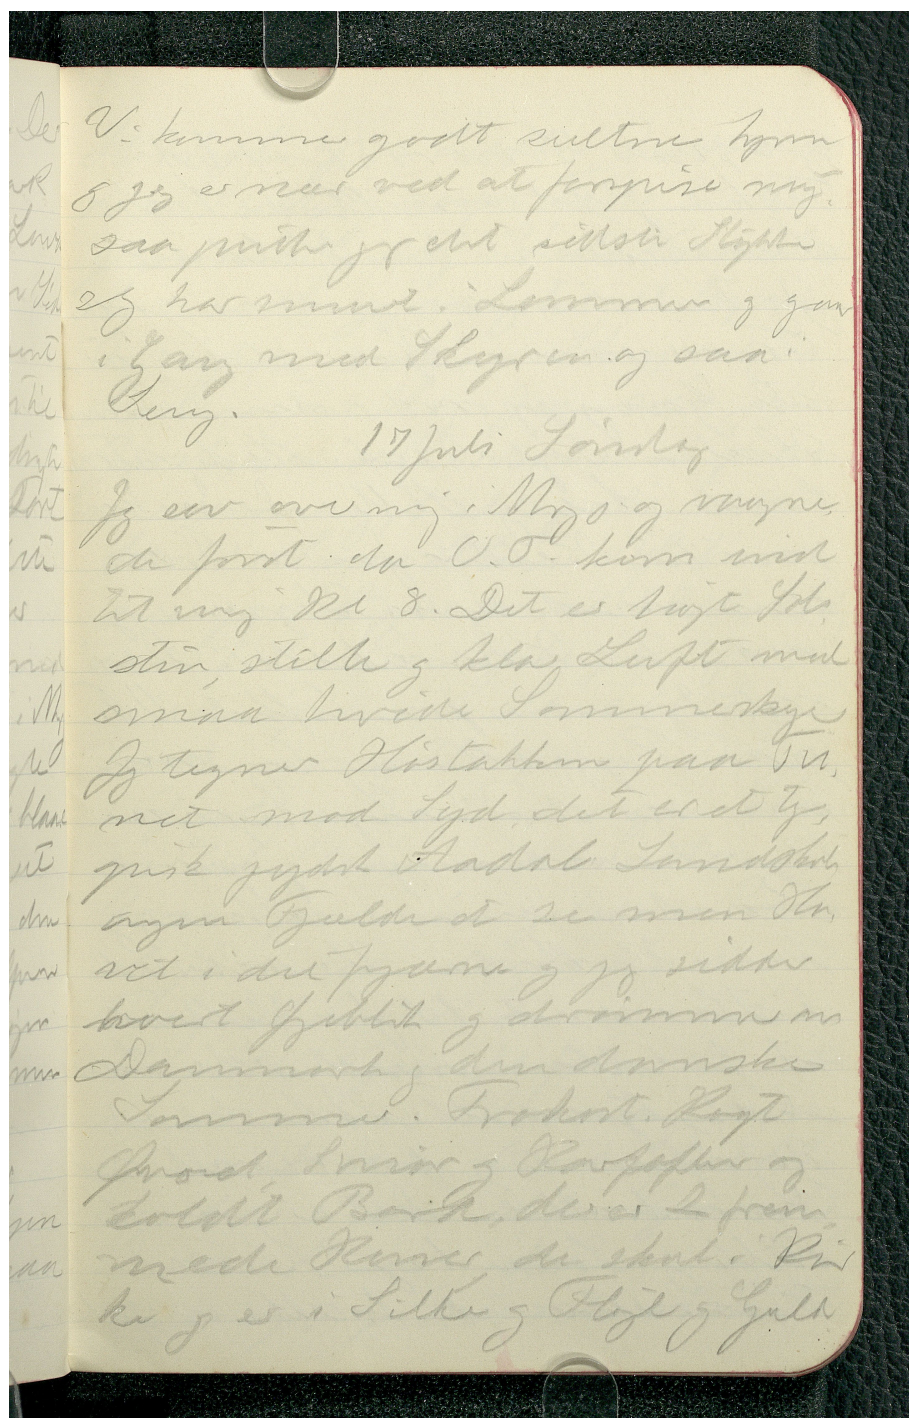 Vi kommer godt sultne hjem
og jeg er nær ved at forspise mig.
saa jeg det sidste Stykke
jeg har i Lommen og gaar
i Gang med Skyren og saa i
Seng.
17 Juli Søndag
Jeg sov over mig i Morges og vaagne,
de først da O. T. kom ind
til mig Kl 8. Det er højt Sol,
skin, stille og klar Luft med
smaa hvide Sommerskyer
Jeg tegner Høstakken paa Tu,
net mod Syd, det er et ty,
pisk jydsk Aadals Landskab
ingen Fjelde at se men Ha,
vet i det fjerne og jeg sidder
hvert Øjeblik og drømmer om
Danmark og den danske
Sommer. Frokost. Kogt
Ørred, Smør og og
koldt Bord, der er 2 frem
mede Koner, de skal i Kir
ke og er i Silke og Fløjl og Guld